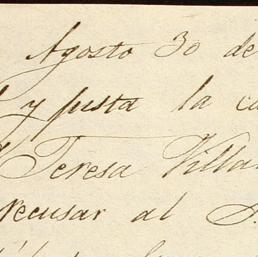 Agosto 30 de
y justa la ca
Teresa Villa
recusar al